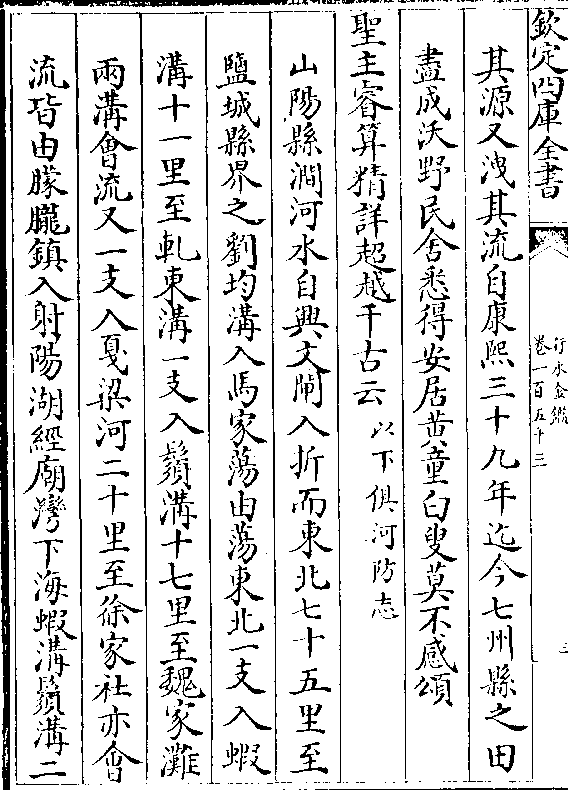 欽定四庫全書
行水金鑑
卷一百五十三
三
其源又洩其流自康熙三十九年迄今七州縣之田
盡成沃野民舍悉得安居黄童白叟莫不感頌
聖主睿算精詳超越千古云以下俱河防志
山陽縣澗河水自興文閘入折而東北七十五里至
鹽城縣界之劉均溝入馬家蕩由蕩東北一支入蝦
溝十一里至軋東溝一支入鬚溝十七里至魏家灘
兩溝會流又一支入戛梁河二十里至徐家社亦會
流皆由朦朧鎮入射陽湖經廟灣下海蝦溝鬚溝二